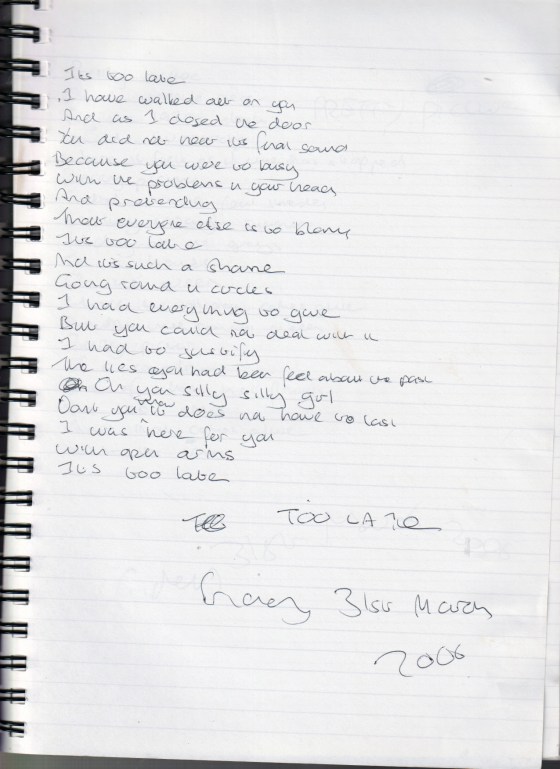 Its too late
I have walked out on you
And as I closed the door
You did not hear its final sound
Because you were to busy
With the problems in your head
And pretending
That everyone else is to blame
Its too late
And its such a shame
Going round in circles
I had everything to give
But you could not deal with it
I had to justify
The lies you had been feel about the past
Oh you silly silly girl
Dont you know it does not have to last
I was here for you
With open arms
Its too late
TOO LATE
31st March
2006